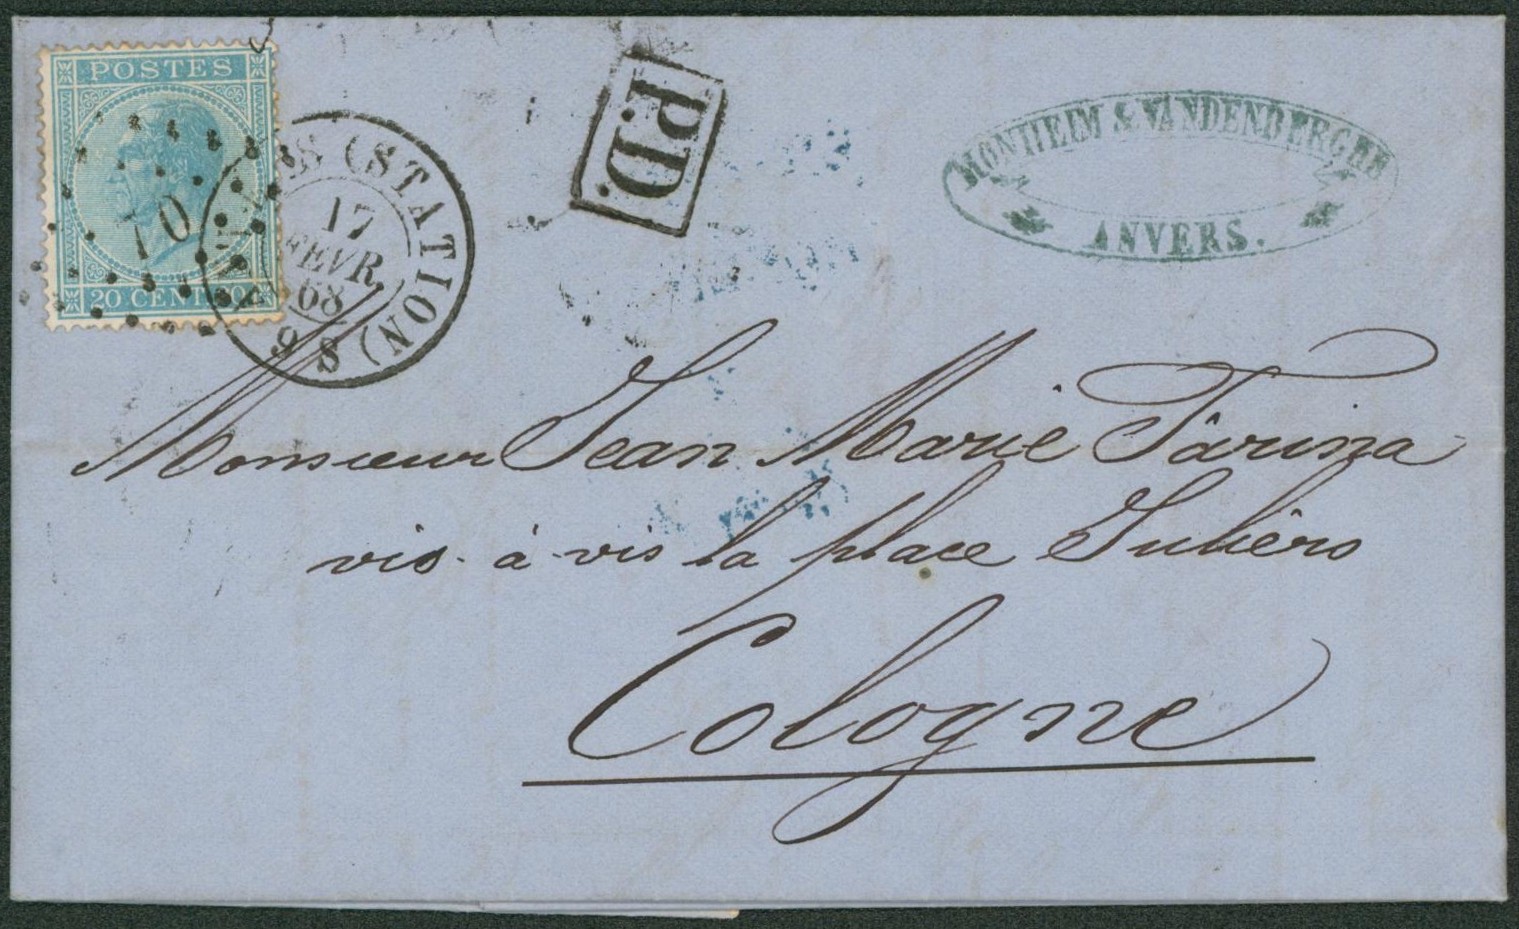 POSTES
20 CENT.
10
ANVERS (STATION)
17
FEVR.
68
P.D.
MONHEIM & VANDENBERGHE
ANVERS.
Monsieur Jean Marie Fârina
vis-à-vis la place Juliêrs
Cologne